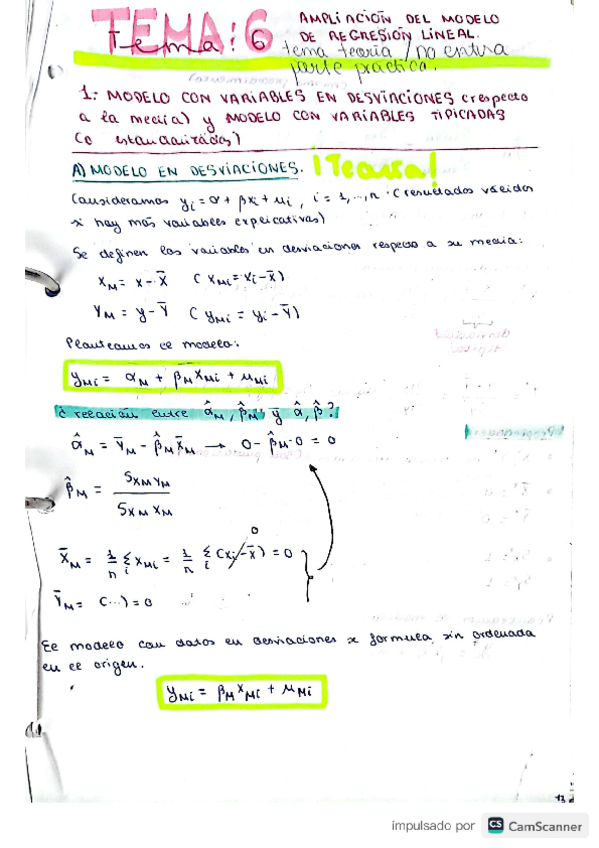 TEMA: 6 AMPLIACIÓN DEL MODELO
Tema: 6 DE REGRESIÓN LINEAL.
tema teoría / no entra
parte práctica.
1: MODELO CON VARIABLES EN DESVIACIONES (respecto
a la media) y MODELO CON VARIABLES TIPICADAS
(o estandarizadas)
A) MODELO EN DESVIACIONES. ¡Teoría!
Consideramos yi = α + βxi + ui , i = 1,..,n. (resultados válidos
si hay más variables explicativas)
Se definen las variables en desviaciones respecto a su media:
XM = x - x̄ (XMi = xi - x̄)
YM = y - ȳ (yMi = yi - ȳ)
Planteamos el modelo:
yMi = αM + βM XMi + uMi
¿relación entre α̂M, β̂M y α̂, β̂?
α̂M = ȲM - β̂M X̄M → 0 - β̂M · 0 = 0
β̂M = SXMYM / SXMXM
X̄M = 1/n Σi XMi = 1/n Σi (xi - x̄) = 0
0
ȲM = (...) = 0
El modelo con datos en desviaciones se formula sin ordenada
en el origen.
yMi = βM XMi + uMi
impulsado por CS CamScanner